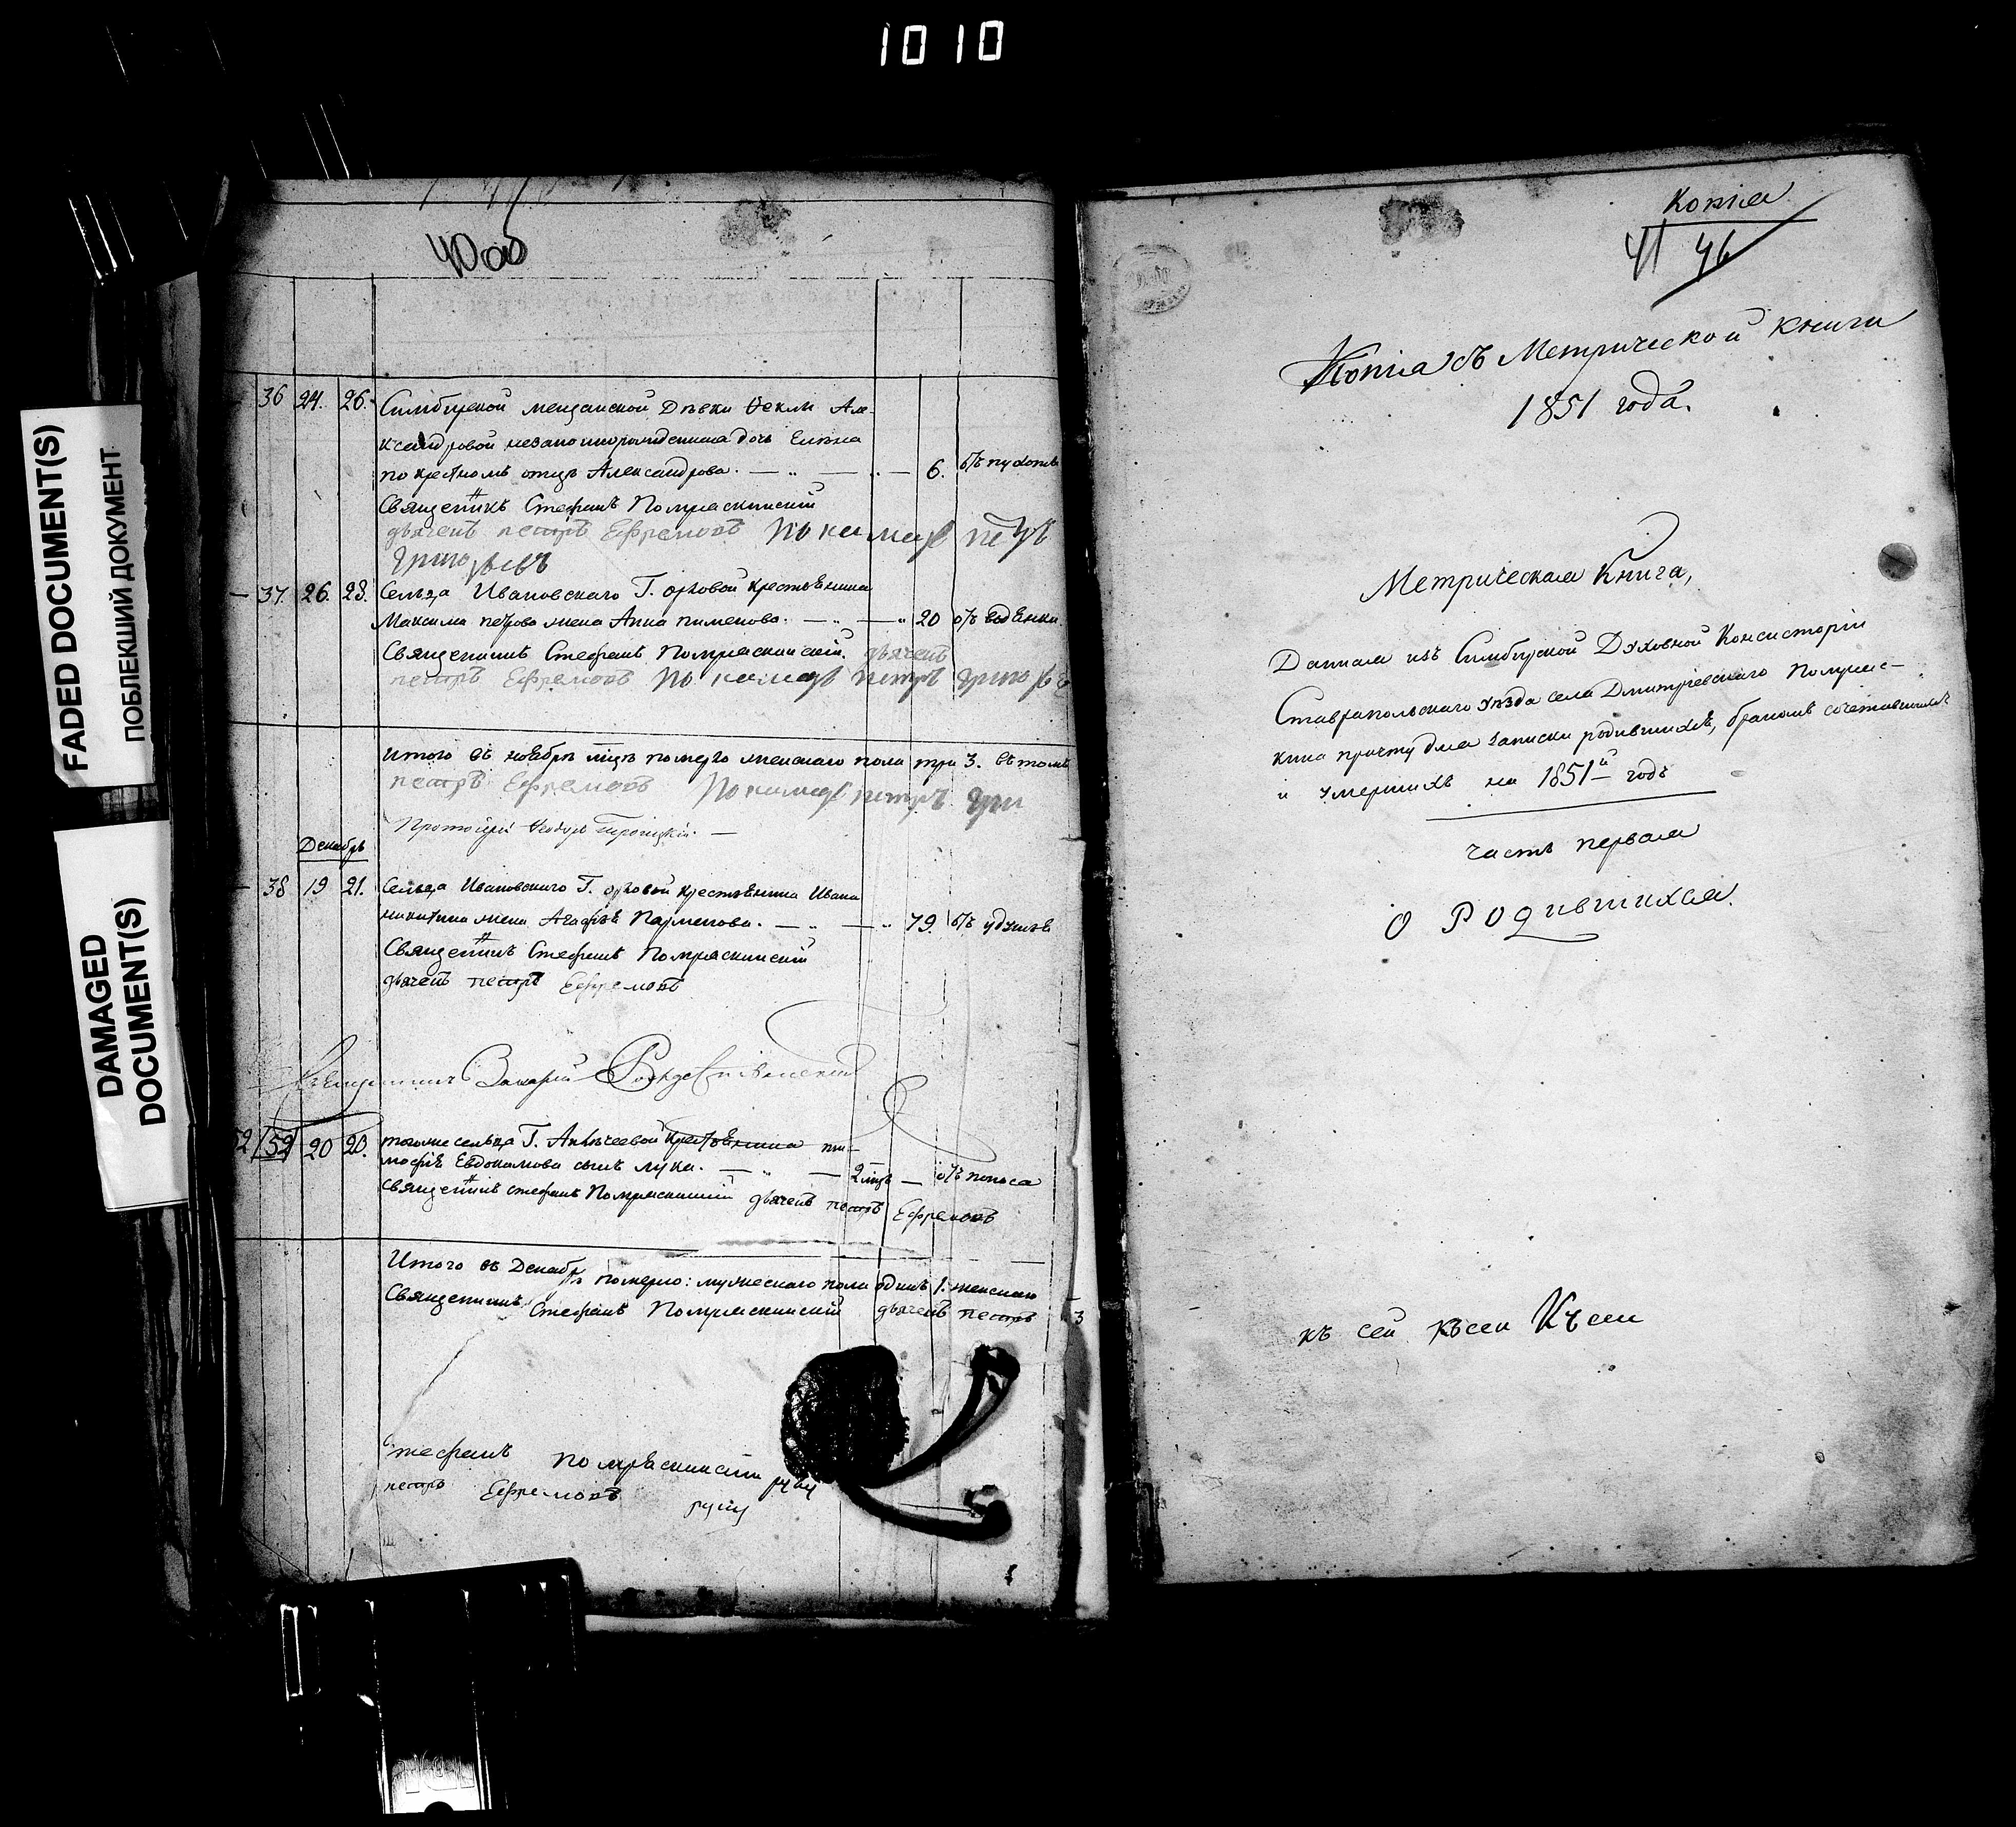 1010
FADED DOCUMENT(S)
ПОБЛЕКШИЙ ДОКУМЕНТ
DAMAGED
DOCUMENT(S)
40об
36 24. 26. Симбирской мещанской Дѣвки Ѳеклы Але-
ксандровой незаконнорожденная дочь Елена
по крестномъ отцѣ Александрова. 6.
Священникъ Стефанъ Помряскинскій
дьячекъ петръ Ефремовъ Пономарь петръ
Григорьевъ
37. 26. 28. Сельца Ивановскаго Г. орловой крестьянина
Максима петрова жена Анна пименова. 20
Священникъ Стефанъ Помряскинскій. дьячекъ
петръ Ефремовъ Пономарь петръ Григорьевъ
Итого въ ноябрѣ мцѣ померло женскаго пола три 3. въ томъ
петръ Ефремовъ Пономарь петръ Гри
Протоіерей Ѳеодоръ Троицкій.
Декабрь
38 19 21. Сельца Ивановскаго Г. орловой крестьянина Ивана
никитина жена Агафья Парменова. 79. отъ удушья
Священникъ Стефанъ Помряскинскій
дьячекъ петръ Ефремовъ
Священникъ Захарій Рождественскій
52 20 20. тогоже сельца Г. крестьянина ти-
мофѣя Евдокимова сынъ лука. 2 мцъ отъ поноса
Священникъ стефанъ Помряскинскій дьячекъ петръ Ефремовъ
Итого въ Декабрѣ померло: мужескаго пола одинъ 1. женскаго
Священникъ Стефанъ Помряскинскій дьячекъ петръ
3
Стефанъ Помряскинскій руку
петръ Ефремовъ руку
Копія
41 46
Копія съ Метрической книги
1851 года.
Метрическая Книга,
Данная изъ Симбирской Духовной Консисторіи
Ставропольскаго уѣзда села Дмитріевскаго Помряс-
кина причту для записки родившихся, бракомъ сочетавшихся
и умершихъ на 1851й годъ
часть первая
О Родившихся.
къ сей къ сей Къ сей